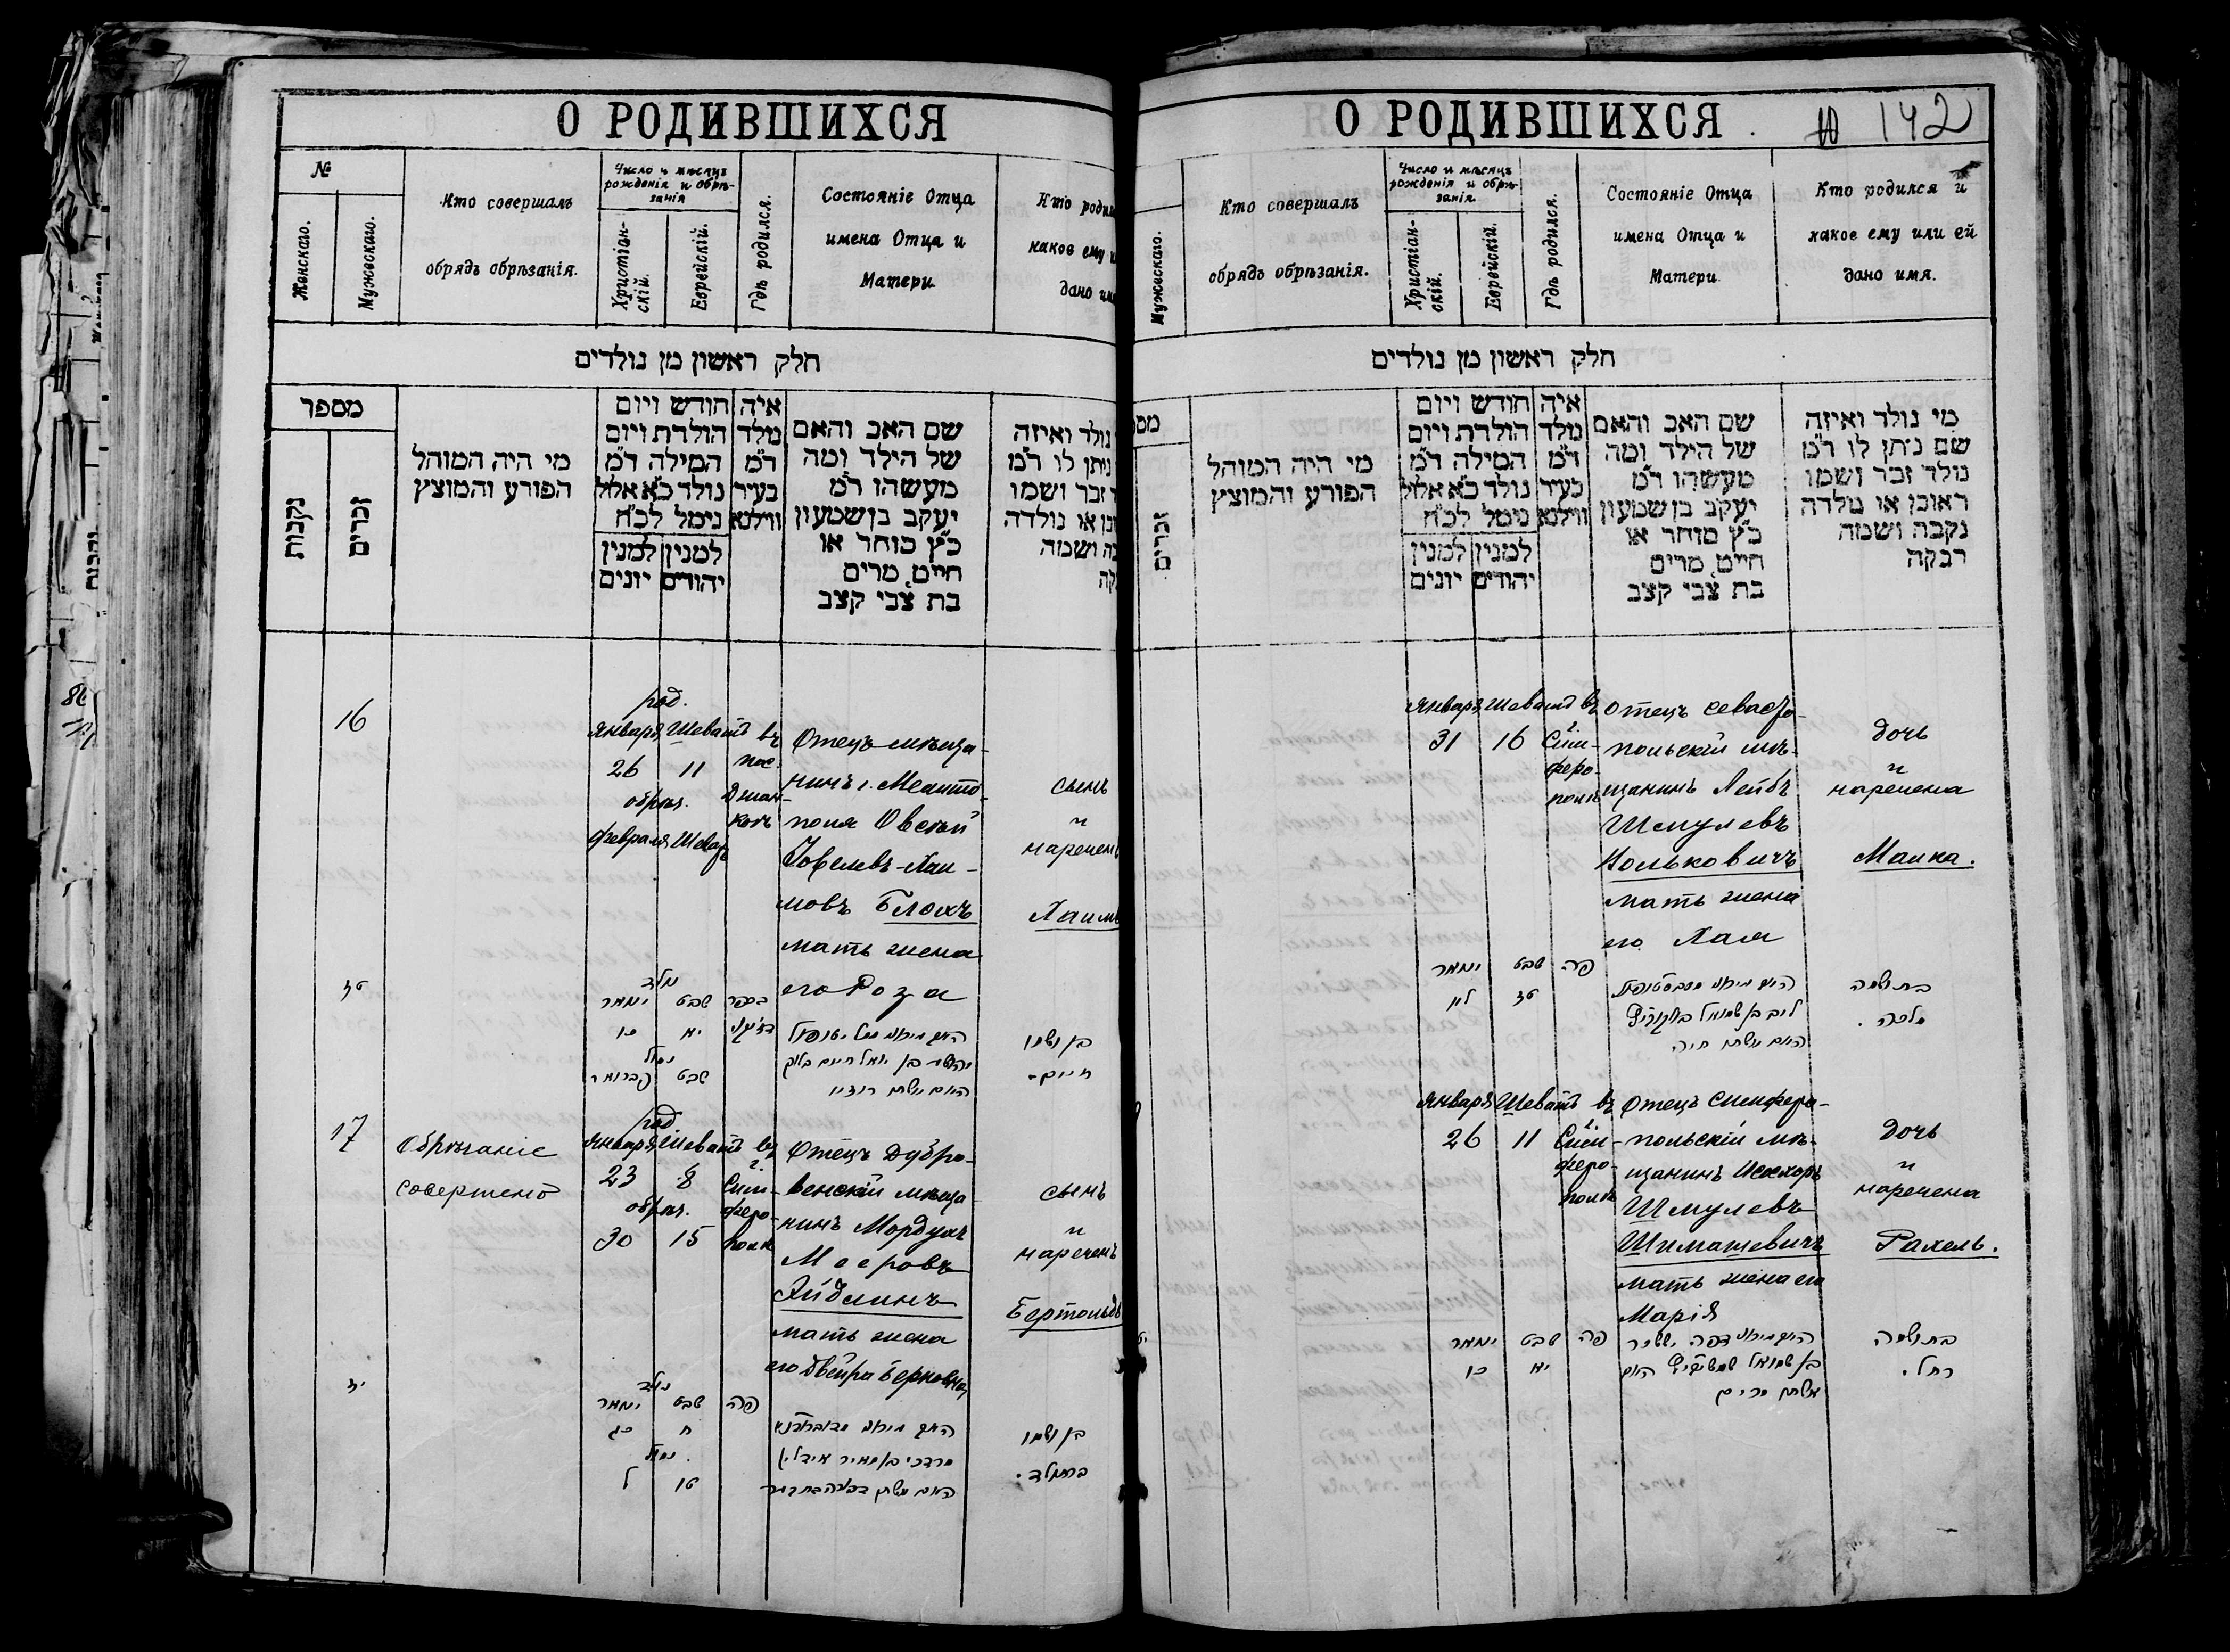 О РОДИВШИХСЯ
№
Женскаго.
Мужескаго.
Кто совершалъ
обрядъ обрѣзанія.
Число и мѣсяцъ
рожденія и обрѣ-
занія
Христіан-
скій.
Еврейскій.
Гдѣ родился.
Состояніе Отца
имена Отца и
Матери
Кто роди
какое ему и
дано им
חלק ראשון מן נולדים
מספר
נקבות
זכרים
מי היה המוהל
הפורע והמוצץ
חודש ויום
הולדת ויום
המילה ד״מ
נולד כ״א אלול
נימל לכ״ח
למנין למנין
יהודים יונים
איה
נולד
ד״מ
בעיר
ווילנא
שם האב והאם
של הילד ומה
מעשהו ד״מ
יעקב בן שמעון
כ״ץ סוחר או
חייט, מרים
בת צבי קצב
נולד ואיזה
ניתן לו ד״מ
זכר ושמו
או נולדה
ושמה
16
род.
Январь Шеватъ въ
26 11 пос.
обрѣз. Джан-
февраля Шеват кой
Отецъ мѣща-
нинъ г. Мелито-
поля Овсѣй
Іовелевъ-Хаи-
мовъ Блохъ
мать жена
его Роза
сынъ
и
нареченъ
Хаимъ
טז
נולד
ינואר שבט
כו יא
נמול
שבט
בן ושמו
חיים.
17
Обрѣзаніе
совершено
род.
Январь Шеватъ въ
23 8 г. Сим-
обрѣз. феро-
30 15 поль
Отецъ Дубро-
венскій мѣща-
нинъ Мордухъ
Мееровъ
Айдлинъ
мать жена
его Двейра Берковна
сынъ
и
нареченъ
Бертольдъ
יז
נולד
ינואר שבט פה
כג ח
נמול
ל טו
מרדכי בן מאיר אידלין
בן ושמו
О РОДИВШИХСЯ
142
Мужескаго.
Кто совершалъ
обрядъ обрѣзанія.
Число и мѣсяцъ
рожденія и обрѣ-
занія.
Христіан-
скій.
Еврейскій.
Гдѣ родился.
Состояніе Отца
имена Отца и
Матери
Кто родился и
какое ему или ей
дано имя.
חלק ראשון מן נולדים
זכרים
מי היה המוהל
הפורע והמוצץ
חודש ויום
הולדת ויום
המילה ד״מ
נולד כ״א אלול
נימל לכ״ח
למנין למנין
יהודים יונים
איה
נולד
ד״מ
בעיר
ווילנא
שם האב והאם
של הילד ומה
מעשהו ד״מ
יעקב בן שמעון
כ״ץ סוחר או
חייט, מרים
בת צבי קצב
מי נולד ואיזה
שם ניתן לו ד״מ
נולד זכר ושמו
ראובן או נולדה
נקבה ושמה
רבקה
Январь Шеватъ въ
31 16 г. Сим-
феро-
поль
Отецъ Севасто-
польскій мѣ-
щанинъ Лейбъ
Шмулевъ
Нольковичъ
мать жена
его Хая
дочь
и
наречена
Малка.
ינואר שבט פה
לא טז
האם אשתו חיה
בת ושמה
מלכה.
Январь Шеватъ въ
26 11 г. Сим-
феро-
поль
Отецъ Симферо-
польскій мѣ-
щанинъ Исахоръ
Шмулевъ
Шимашевичъ
мать жена его
Марія
дочь
и
наречена
Рахель.
ינואר שבט פה
כו יא
אשתו מרים
בת ושמה
רחל.